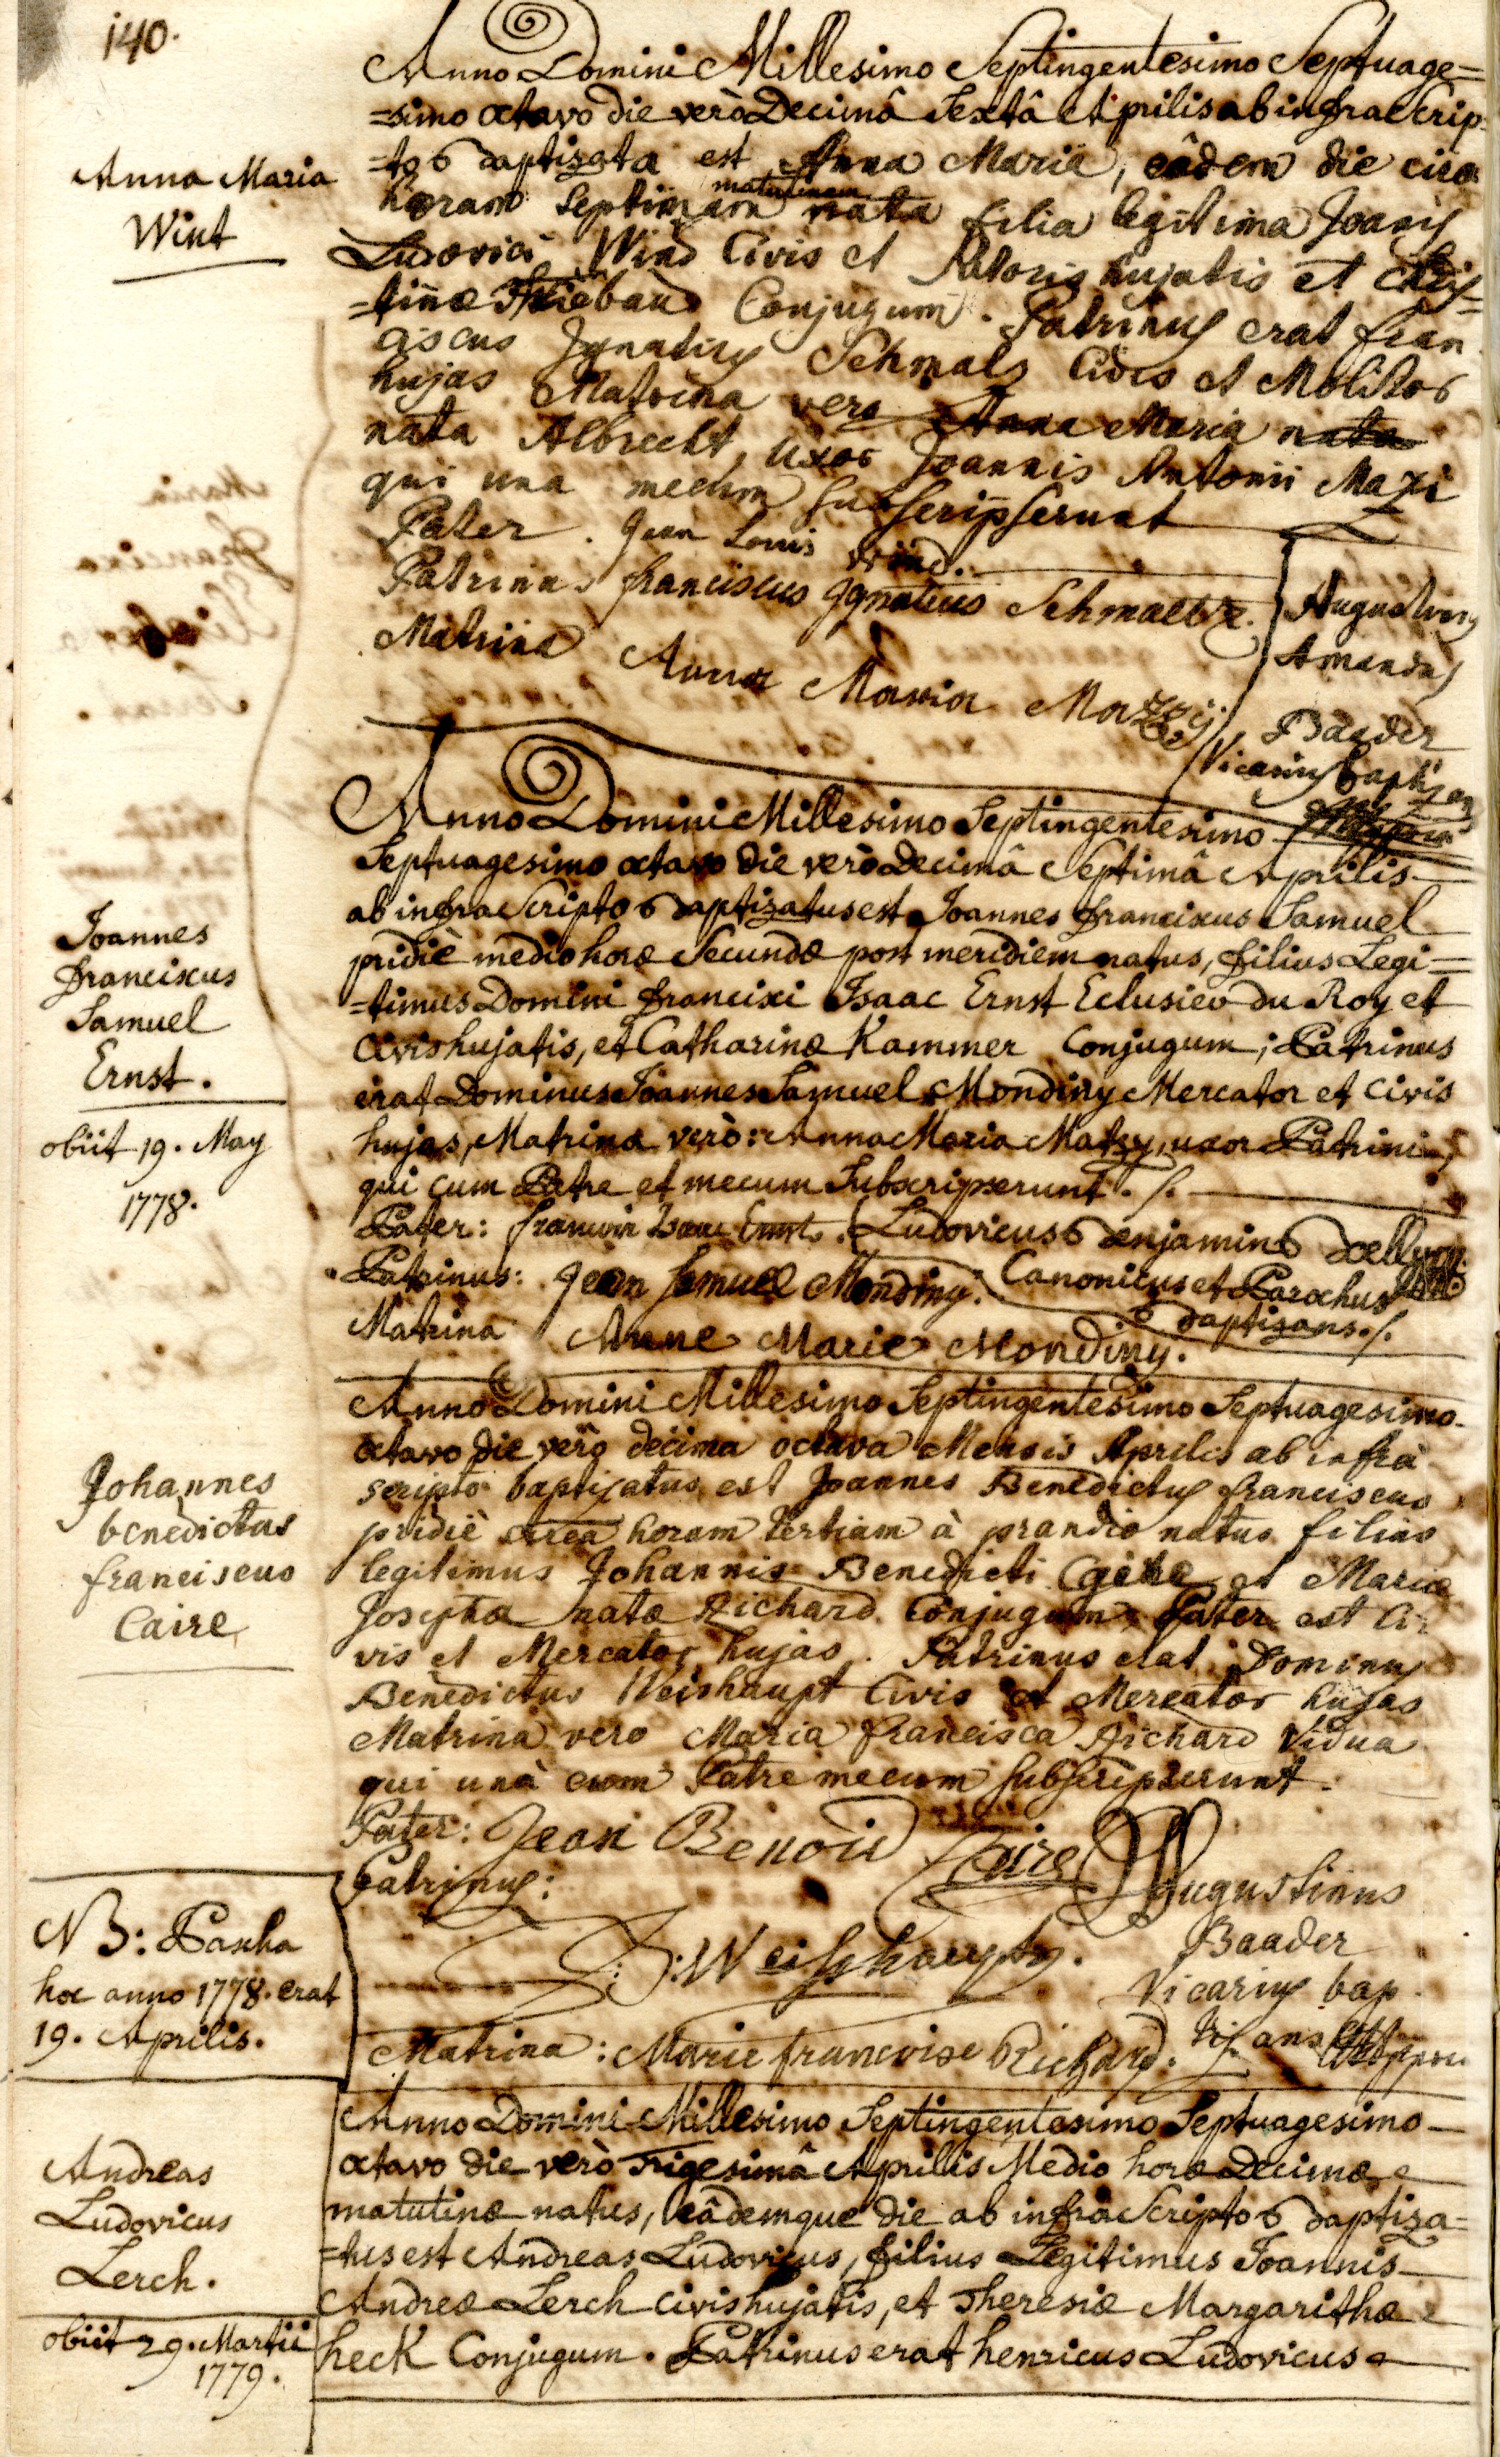 140.
Anno Domini Millesimo Septingentesimo Septuage=
=simo octavo die verò Decimâ Sextâ Aprilis ab infra Scrip=
=to Baptizata est Anna Maria, eâdem die circa
horam Septimam matutinam nata filia legitima Joanis
Ludovici Wind Civis et hujatis et Chris=
=tinæ Conjugum. Patrinus erat fran
ciscus Ignatius Schmals Civis et Molitor
hujas Matrina vero Anna Maria nata
nata Albrecht, uxor Joannis Antonii Mazi
qui una mecum subscripserunt
Pater. Jean Louis Wind.
Patrinus franciscus Ignatius Schmaeltz.
Matrina Anna Maria Mazzij
Augustinus
Amandus
Baader
Vicarius baptizans
Anna Maria
Wint
Anno Domini Millesimo Septingentesimo
Septuagesimo octavo die verò Decimâ Septimâ Aprilis
ab infra Scripto Baptizatus est Joannes franciscus Samuel
pridiè medio horæ Secundæ post meridiem natus, filius Legi=
=timus Domini francisci Isaac Ernst Eclusier du Roy et
Civis hujatis, et Catharinæ Kammer Conjugum; Patrinus
erat Dominus Joannes Samuel Mondiny Mercator et Civis
hujas, Matrina verò: Anna Maria Matzy, uxor Patrini,
qui cum Patre et mecum Subscripserunt ./.
Pater: francois Isaac Ernst.
Patrinus: Jean Samuel Mondiny.
Matrina Anne Marie Mondiny.
Ludovicus Benjamin
Canonicus et Parochus
Baptizans ./.
Joannes
franciscus
Samuel
Ernst.
obiit 19. May
1778.
Anno Domini Millesimo Septingentesimo Septuagesimo
octavo die verò decima octava Mensis Aprilis ab infrà
scripto baptizatus est Joannes Benedictus franciscus
pridiè circa horam tertiam à prandio natus filius
legitimus Johannis Benedicti Caire et Mariæ
Josephæ natæ Richard Conjugum, Pater est Ci-
vis et Mercator hujas. Patrinus erat Dominus
Benedictus Weishaupt Civis et Mercator hujas
Matrina vero Maria francisca Richard Vidua
qui unà cum Patre mecum subscripserunt.
Pater: Jean Benoit Caire
Patrinus:
Weisshaupt.
Matrina: Marie francoise Richard.
Augustinus
Baader
Vicarius bap
tizans
Johannes
benedictus
franciscus
Caire
NB: Pascha
hoc anno 1778. erat
19. Aprilis.
Anno Domini Millesimo Septingentesimo Septuagesimo
octavo die verò Trigesimâ Aprilis Medio horæ Decimæ
matutinæ natus, eâdemque die ab infra Scripto Baptiza=
=tus est Andreas Ludovicus, filius Legitimus Joannis
Andreæ Lerch Civis hujatis, et Theresiæ Margarithæ
heck Conjugum. Patrinus erat henricus Ludovicus
Andreas
Ludovicus
Lerch.
obiit 29. Martii
1779.